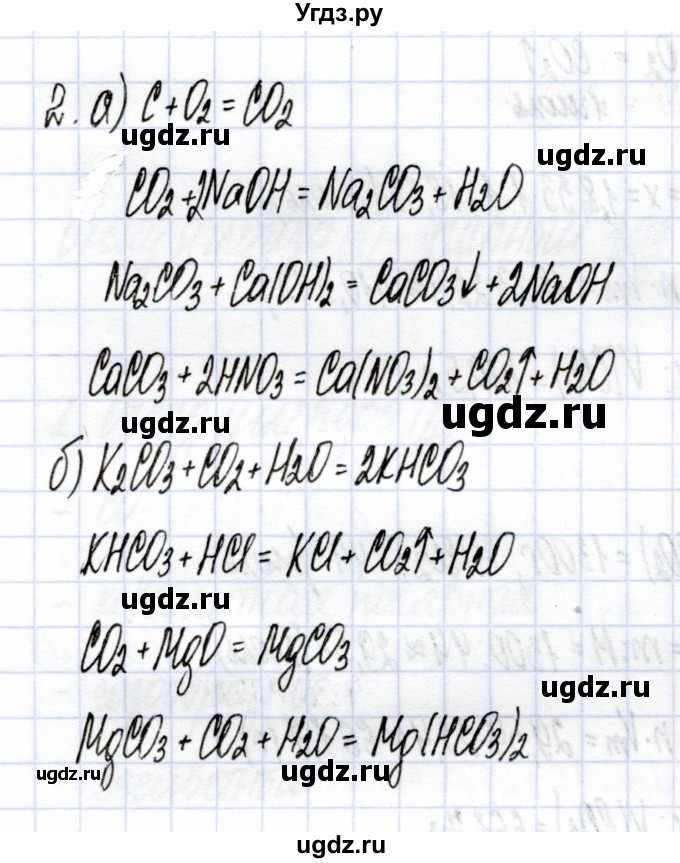 Угдз.ру
2. а) C + O2 = CO2
ugdz.ru
ugdz.ru
CO2 + 2NaOH = Na2CO3 + H2O
ugdz.ru
Na2CO3 + Ca(OH)2 = CaCO3↓ + 2NaOH
ugdz.ru
CaCO3 + 2HNO3 = Ca(NO3)2 + CO2↑ + H2O
ugdz.ru
ugdz.ru
б) K2CO3 + CO2 + H2O = 2KHCO3
ugdz.ru
KHCO3 + HCl = KCl + CO2↑ + H2O
ugdz.ru
ugdz.ru
CO2 + MgO = MgCO3
ugdz.ru
MgCO3 + CO2 + H2O = Mg(HCO3)2
ugdz.ru
ugdz.ru
ugdz.ru
ugdz.ru